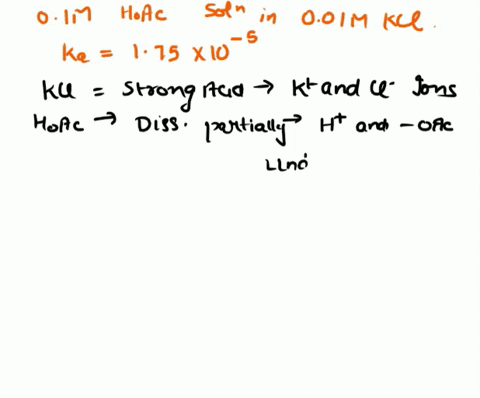 0.1M HoAc Soln in 0.01M KCl.
Ka = 1.75 × 10⁻⁵
KCl = Strong Acid → K⁺ and Cl⁻ Ions
HoAc → Diss. partially → H⁺ and -OAc